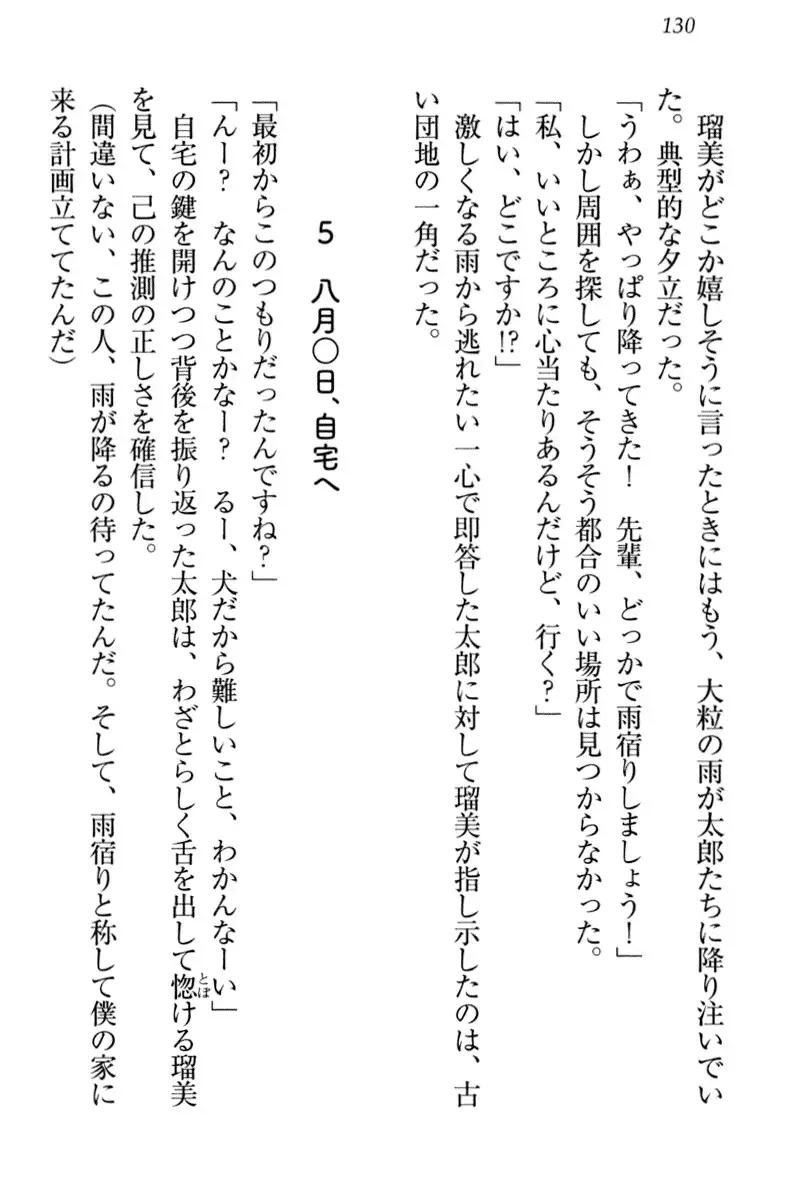 130
瑠美がどこか嬉しそうに言ったときにはもう、大粒の雨が太郎たちに降り注いでい
た。典型的な夕立だった。
「うわぁ、やっぱり降ってきた！　先輩、どっかで雨宿りしましょう！」
しかし周囲を探しても、そうそう都合のいい場所は見つからなかった。
「私、いいところに心当たりあるんだけど、行く？」
「はい、どこですか!?」
激しくなる雨から逃れたい一心で即答した太郎に対して瑠美が指し示したのは、古
い団地の一角だった。
5　八月〇日、自宅へ
「最初からこのつもりだったんですね？」
「んー？　なんのことかなー？　るー、犬だから難しいこと、わかんなーい」
自宅の鍵を開けつつ背後を振り返った太郎は、わざとらしく舌を出して惚ける瑠美
とぼ
を見て、己の推測の正しさを確信した。
（間違いない、この人、雨が降るの待ってたんだ。そして、雨宿りと称して僕の家に
来る計画立ててたんだ）